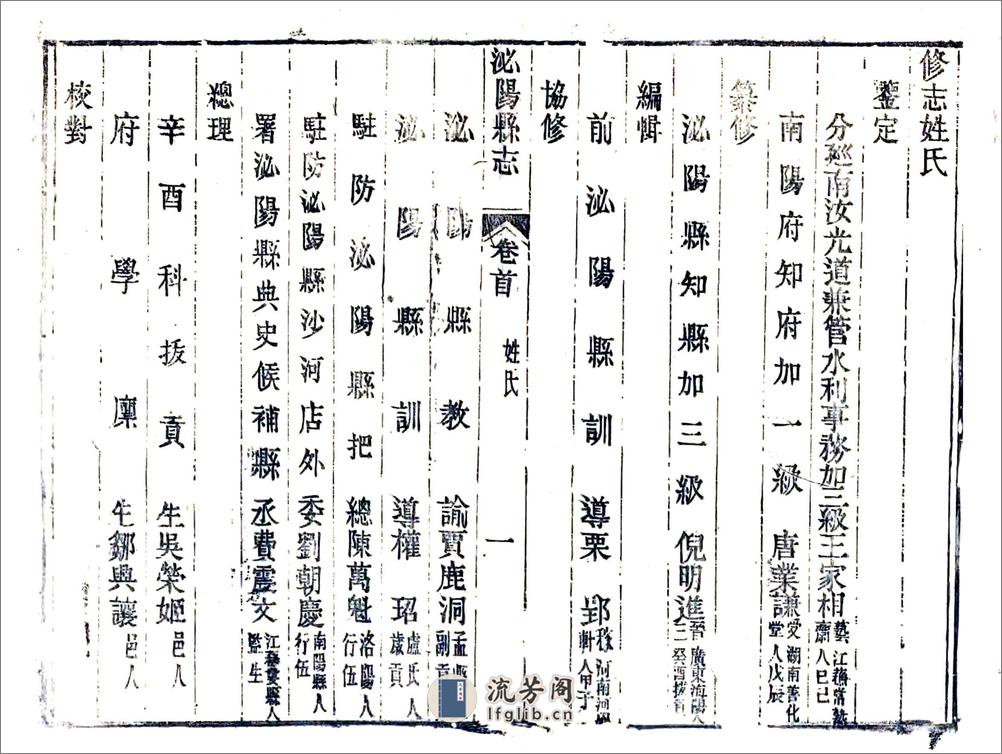 修志姓氏
鑒定
分巡南汝光道兼管水利事務加三級王家相藝齋江蘇常熟人己巳
南陽府知府加一級唐業謙愛堂湖南善化人戊辰
纂修
泌陽縣知縣加三級倪明進晉三廣東海陽人癸酉拔貢
編輯
前泌陽縣訓導栗郢 軒河南 人甲子
協修
泌陽縣志 卷首 姓氏 一
泌陽縣教諭賈鹿洞孟 副貢
泌陽縣訓導權玿盧氏人歲貢
駐防泌陽縣把總陳萬魁洛陽人行伍
駐防泌陽縣沙河店外委劉朝慶南陽縣人行伍
署泌陽縣典史候補縣丞費震文江蘇婁縣人監生
總理
辛酉科拔貢生吳榮姬邑人
府學廩生鄒興讓邑人
校對
流芳阁
lfglib.cn